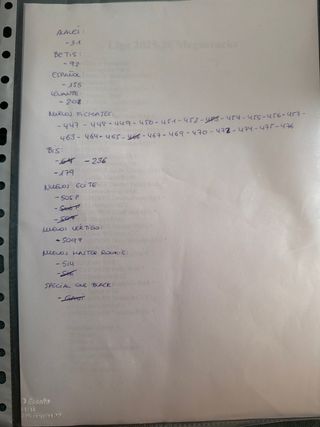 ALAVÉS:
- 31
BETIS:
- 92
ESPAÑOL:
- 155
LEVANTE:
- 208
NUEVOS FICHAJES:
- 447 - 448 - 449 - 450 - 451 - 452 - 453 - 454 - 455 - 456 - 457 -
463 - 464 - 465 - 466 - 467 - 469 - 470 - 472 - 474 - 475 - 476
BIS:
- 236
- 179
NUEVOS ELITE:
- 505P
- 506P
- 507
NUEVOS VERTIGO:
- 504P
NUEVOS MASTER ROOKIE:
- 514
- 516
SPECIAL ONE BLACK: